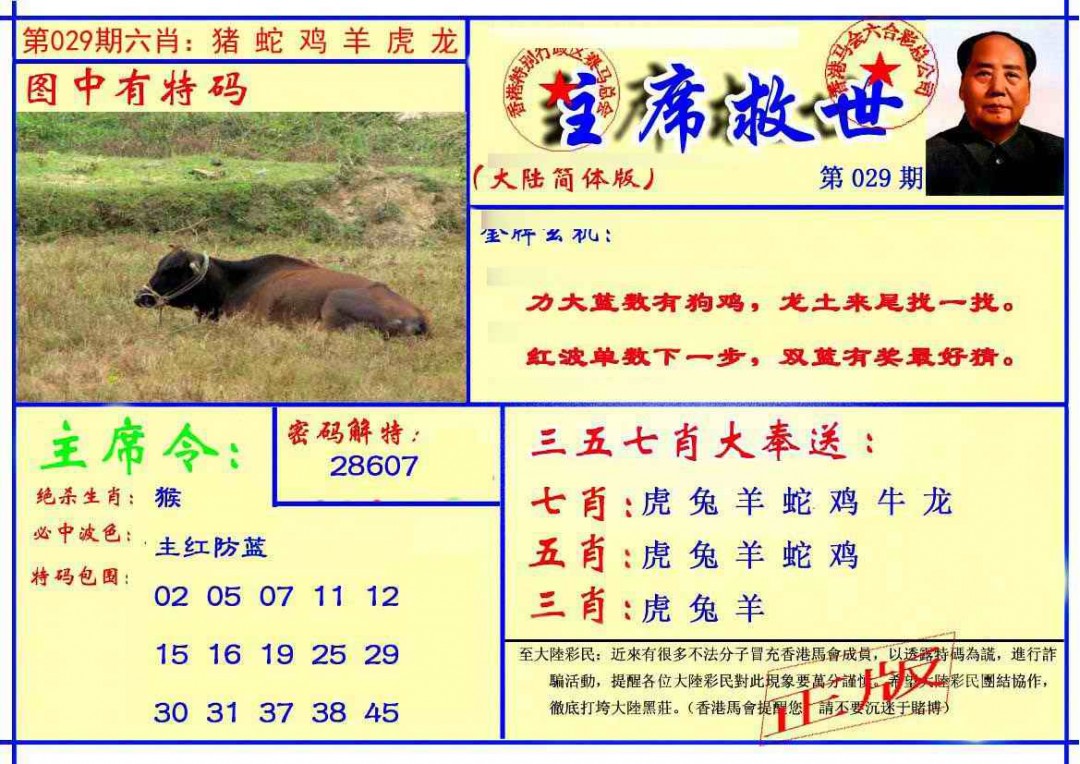 第029期六肖：猪 蛇 鸡 羊 虎 龙
图中有特码
香港特别行政区赛马总会
香港马会六合彩总公司
主席救世
（大陆简体版）
第 029 期
金牌玄机：
力大蓝数有狗鸡，龙土来尾找一找。
红波单数下一步，双蓝有奖最好猜。
主席令：
绝杀生肖：猴
必中波色：主红防蓝
特码包围：
02 05 07 11 12
15 16 19 25 29
30 31 37 38 45
密码解特：
28607
三五七肖大奉送：
七肖：虎 兔 羊 蛇 鸡 牛 龙
五肖：虎 兔 羊 蛇 鸡
三肖：虎 兔 羊
至大陸彩民：近來有很多不法分子冒充香港馬會成員，以透露特码為謊，進行詐
騙活動，提醒各位大陸彩民對此現象要萬分謹慎。希望大陸彩民團結協作，
徹底打垮大陸黑莊。（香港馬會提醒您：請不要沉迷于賭博）
正版